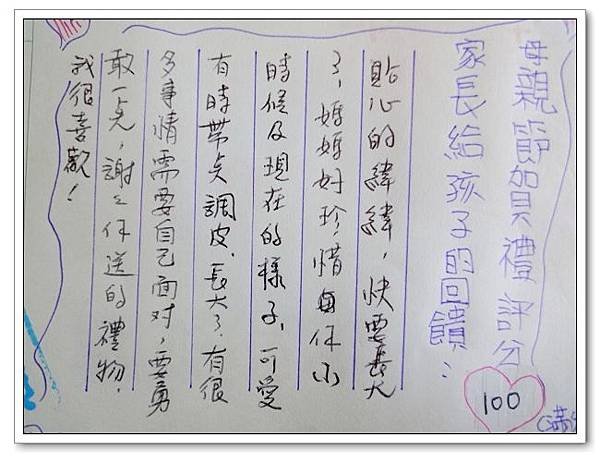 母親節賀禮評分
100
(滿分
家長給孩子的回饋：
貼心的緯緯，快要長大
了，媽媽好珍惜你小
時候及現在的樣子，可愛
有時帶点調皮，長大了，有很
多事情需要自己面对，要勇
敢一点，謝々你送的禮物，
我很喜歡！